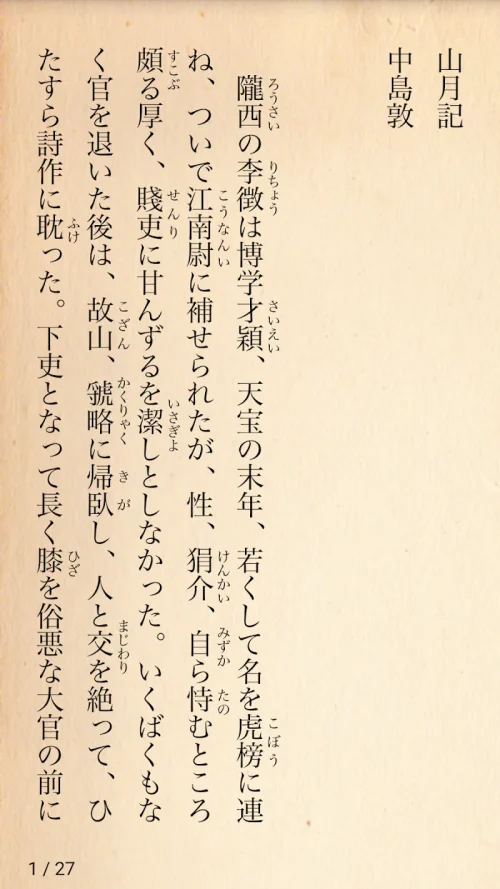 山月記
中島敦
隴西の李徴は博学才穎、天宝の末年、若くして名を虎榜に連
ろうさい りちょう さいえい こぼう
ね、ついで江南尉に補せられたが、性、狷介、自ら恃むところ
こうなんい けんかい みずか たの
頗る厚く、賤吏に甘んずるを潔しとしなかった。いくばくもな
すこぶ せんり いさぎよ
く官を退いた後は、故山、虢略に帰臥し、人と交を絶って、ひ
こざん かくりゃく きが まじわり
たすら詩作に耽った。下吏となって長く膝を俗悪な大官の前に
ふけ ひざ
1 / 27